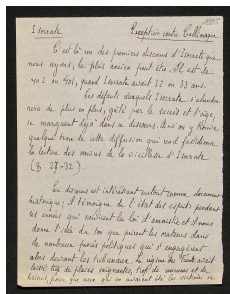 Isocrate Exception contre Callimaque
C'est là un des premiers discours d'Isocrate que
nous ayons, le plus ancien peut-être. Il est de
402 ou 401, quand Isocrate avait 32 ou 33 ans.
Les défauts auxquels Isocrate s'abandon-
nera de plus en plus, gâté par le succès et l'âge,
se marquent déjà dans ce discours. Mais on y trouve
quelque chose de cette diffusion qui rend fastidieuse
la lecture des œuvres de la vieillesse d'Isocrate
(§ 27-32).
Ce discours est intéressant surtout comme document
historique; il témoigne de l'état des esprits pendant
les années qui suivirent la loi d'amnistie et il nous
donne l'idée du ton que prirent les orateurs dans
de nombreux procès politiques qui s'engagèrent
alors devant les tribunaux. Le régime des Trente avait
laissé trop de plaies saignantes, trop de rancunes et de
haines, pour que ceux qui en avaient été les victimes se